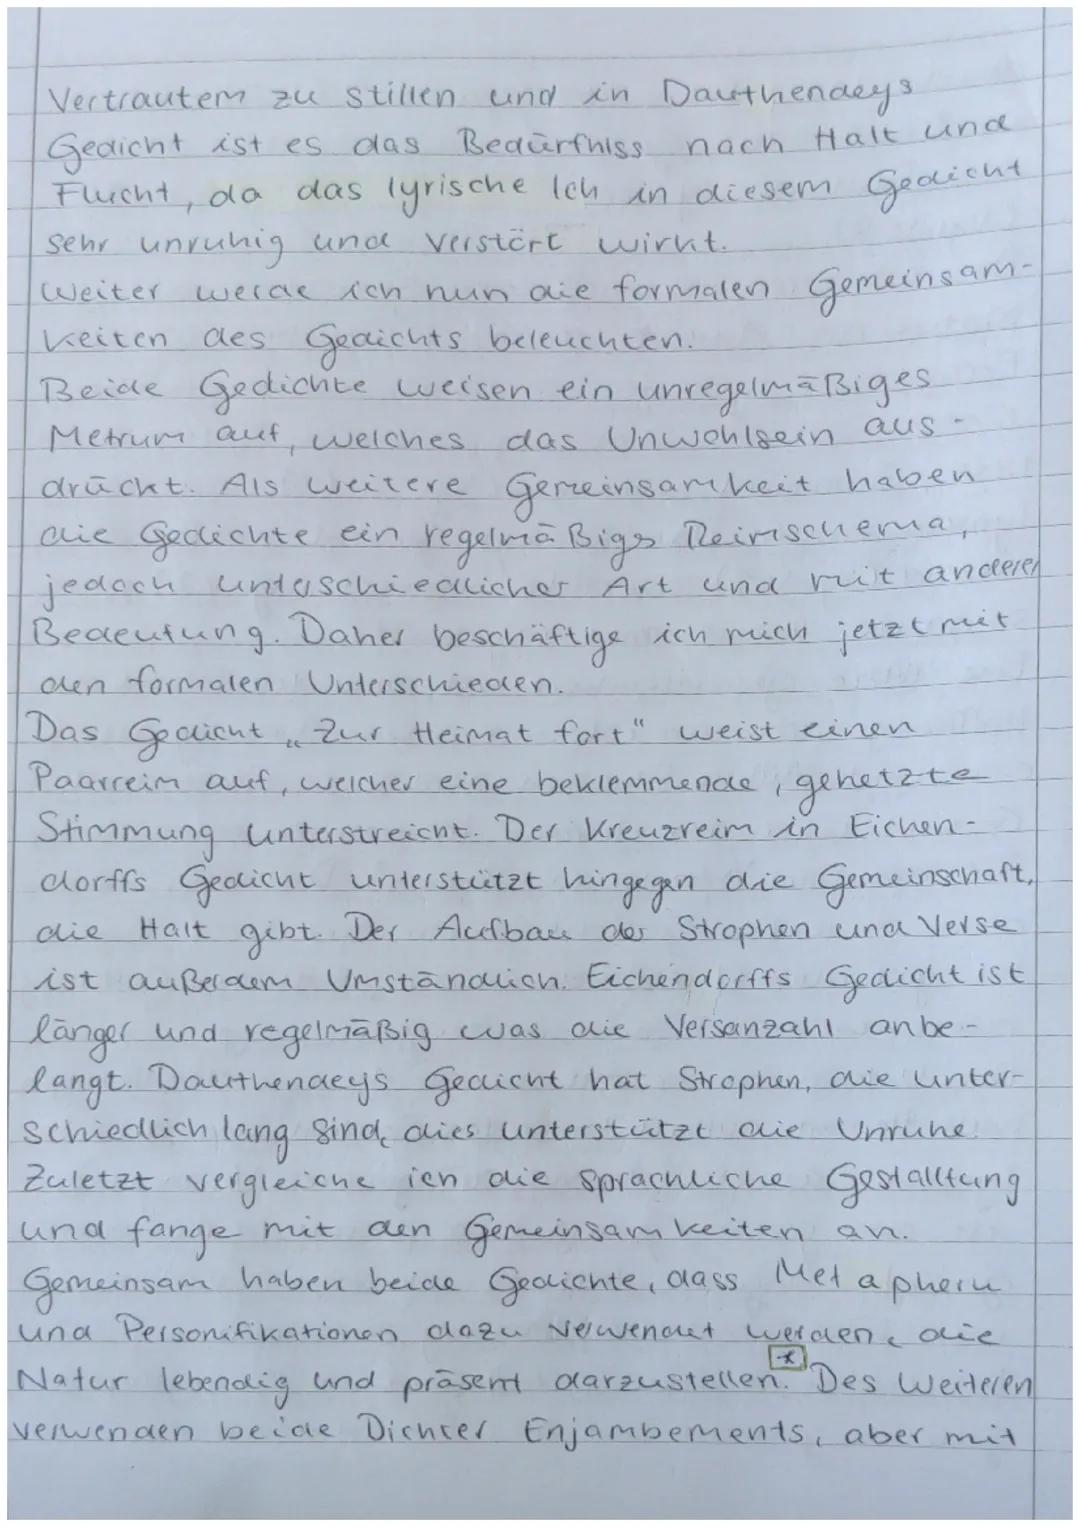 Vertrautem zu stillen und in Dauthendeys
Gedicht ist es das Bedürfniss nach Halt und
Flucht, da das lyrische Ich in diesem Gedicht
sehr unruhig und verstört wirkt.
Weiter werde ich nun die formalen Gemeinsam-
keiten des Gedichts beleuchten.
Beide Gedichte weisen ein unregelmäßiges
Metrum auf, welches das Unwohlsein aus-
drückt. Als weitere Gemeinsamkeit haben
die Gedichte ein regelmäßigs Reimschema,
jedoch unterschiedlicher Art und mit anderer
Bedeutung. Daher beschäftige ich mich jetzt mit
den formalen Unterschieden.
Das Gedicht „Zur Heimat fort" weist einen
Paarreim auf, welcher eine beklemmende, gehetzte
Stimmung unterstreicht. Der Kreuzreim in Eichen-
dorffs Gedicht unterstützt hingegen die Gemeinschaft,
die Halt gibt. Der Aufbau der Strophen und Verse
ist außerdem Umständlich. Eichendorffs Gedicht ist
länger und regelmäßig was die Versanzahl anbe-
langt. Dauthendeys Gedicht hat Strophen, die unter-
schiedlich lang sind, dies unterstützt die Unruhe.
Zuletzt vergleiche ich die sprachliche Gestalltung
und fange mit den Gemeinsamkeiten an.
Gemeinsam haben beide Gedichte, dass Metaphern
und Personifikationen dazu verwendet werden, die
Natur lebendig und präsent darzustellen.* Des Weiteren
verwenden beide Dichter Enjambements, aber mit